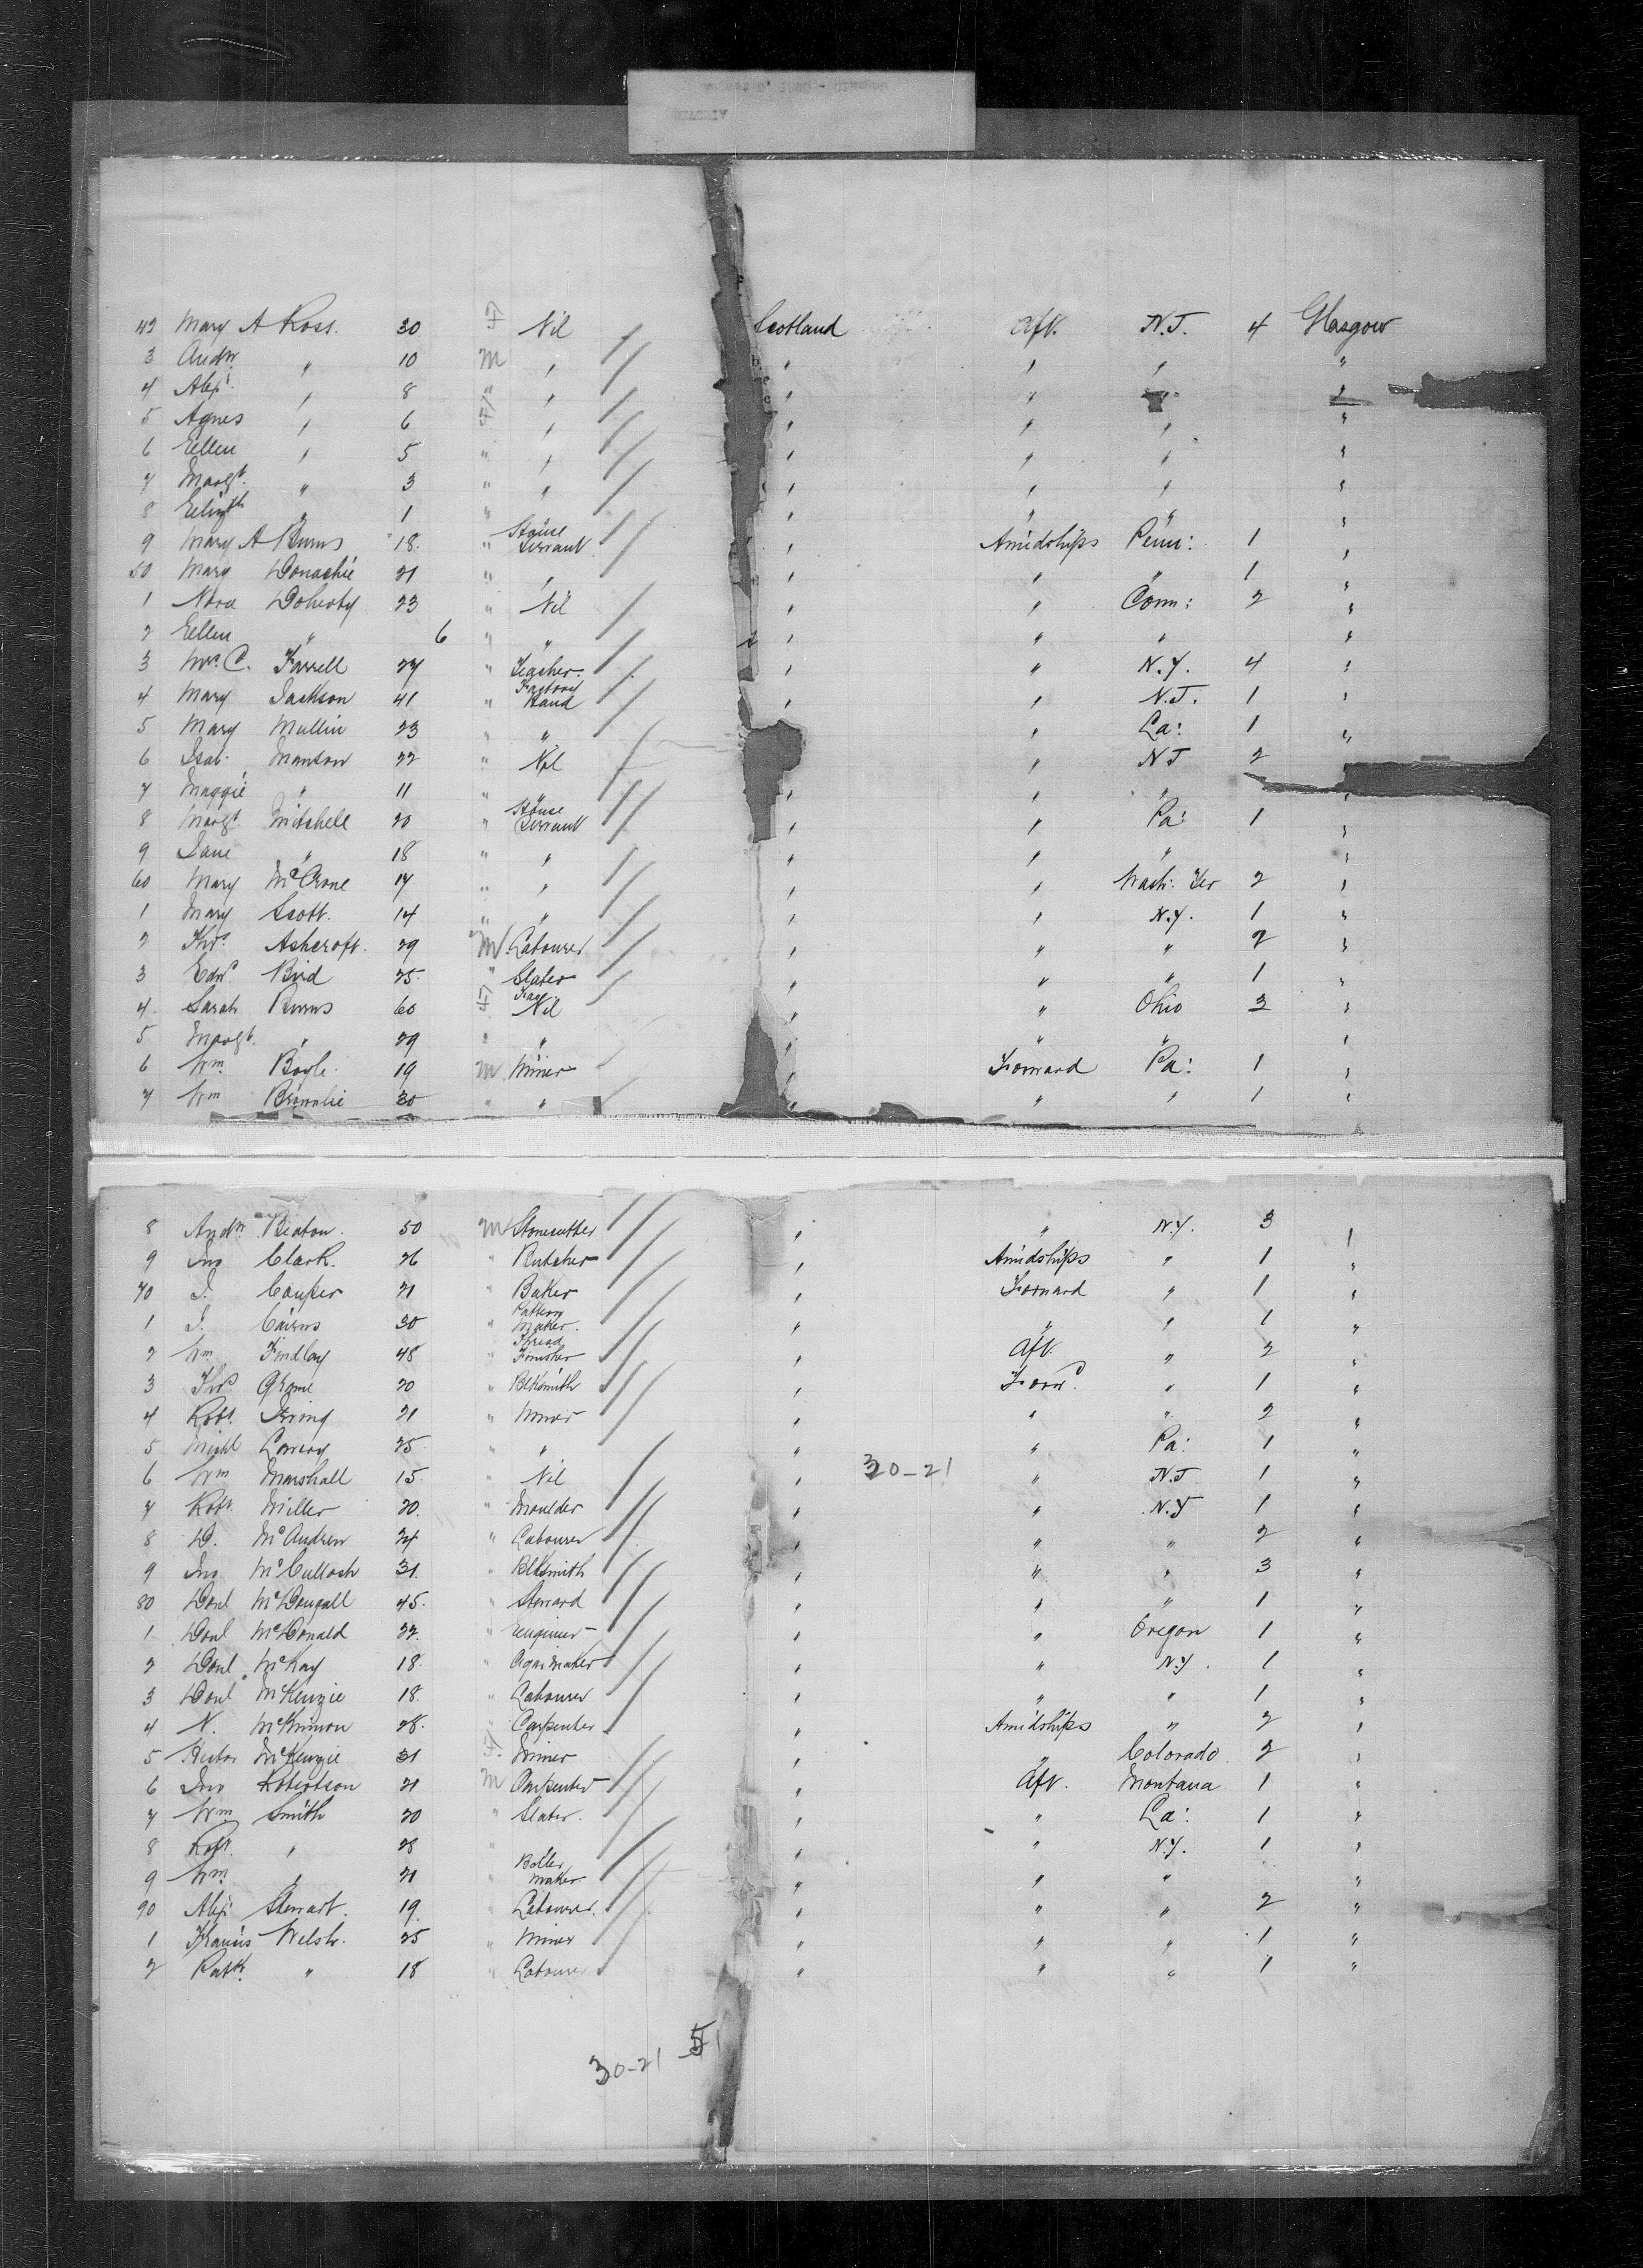 42 Mary A Ross. 30 F Nil Scotland Aft. N.J. 4 Glasgow
3 Andw. " 10 m " " " " "
4 Alexr. " 8 " " " " " "
5 Agnes " 6 F " " " " "
6 Ellen " 5 " " " " " "
7 Margt. " 3 " " " " " "
8 Elizth " 1 " " " " "
9 Mary A Burns 18. " House Servant " Amidships Penn: 1 "
50 Mary Donachie 21 " " " " " 1 "
1 Nora Doherty 23 " Nil " " Conn: 2 "
2 Ellen " 6 " " " " " "
3 Mrs. C. Farrell 27 " Teacher " " N.Y. 4 "
4 Mary Jackson 41 " Factory Hand " " N.J. 1 "
5 Mary Mullin 23 " " " La: 1 "
6 Isab. Manson 22 " Nil " NJ 2
7 Maggie " 11 " " " " " "
8 Margt. Mitchell 20 " House Servant " " Pa: 1 "
9 Jane " 18 " " " " " "
60 Mary McCrone 17 " " " " Wash: Ter 2 "
1 Mary Scott. 14 " " " " N.Y. 1 "
2 Thos. Ashcroft. 29 M. Labourer " " " 2 "
3 Edwd Bird 25 " Slater " " " 1 "
4. Sarah Burns 60 F Nil " " Ohio 3 "
5 Margt. " 29 " " " " " "
6 Wm. Boyle. 19 m Miner " Forward Pa: 1 "
7 Wm Brownlie 30 " " " " " 1 "
8 Andw Beaton. 50 m Stonecutter " " N.Y. 3 "
9 Jno Clark. 26 " Butcher " Amidships " 1 "
70 J. Couper 21 " Baker " Forward " 1 "
1 J. Cairns 30 " Pattern Maker. " " " 1 "
2 Wm Findlay 48 " Thread Finisher " Aft. " 2 "
3 Thos Grame 20 " Blksmith " Forwd. " 1 "
4 Robt. Irving 21 " Miner " " " 2 "
5 Michl Lowery 25 " " " " Pa: 1 "
6 Wm Marshall 15. " Nil " 30-21 " N.J. 1 "
7 Robt. Miller 20. " Moulder " " N.Y 1 "
8 D. McAndrew 24 " Labourer " " " 2 "
9 Jno McCulloch 31. " Blksmith " " " 3 "
80 Donl McDougall 45. " Steward " " " 1 "
1 Donl McDonald 32. " Engineer " " Oregon 1 "
2 Donl McKay 18. " Cigarmaker " " N.Y. 1 "
3 Donl McKenzie 18. " Labourer " " " 1 "
4 N. McKinnon 28. " Carpenter " Amidships " 2 "
5 Hector McKenzie 31 F Miner " " Colorado 2 "
6 Jno Robertson 21 m Carpenter " Aft. Montana 1 "
7 Wm Smith 20 " Slater. " " La: 1 "
8 Robt. " 28 " " " " N.Y. 1 "
9 Wm. " 21 " Boiler maker " " " "
90 Alexr Stewart. 19. " Labourer. " " " 2 "
1 Francis Welsh. 25 " Miner " " " 1 "
2 Patk. " 18 " Labourer " " " 1 "
30-21 51